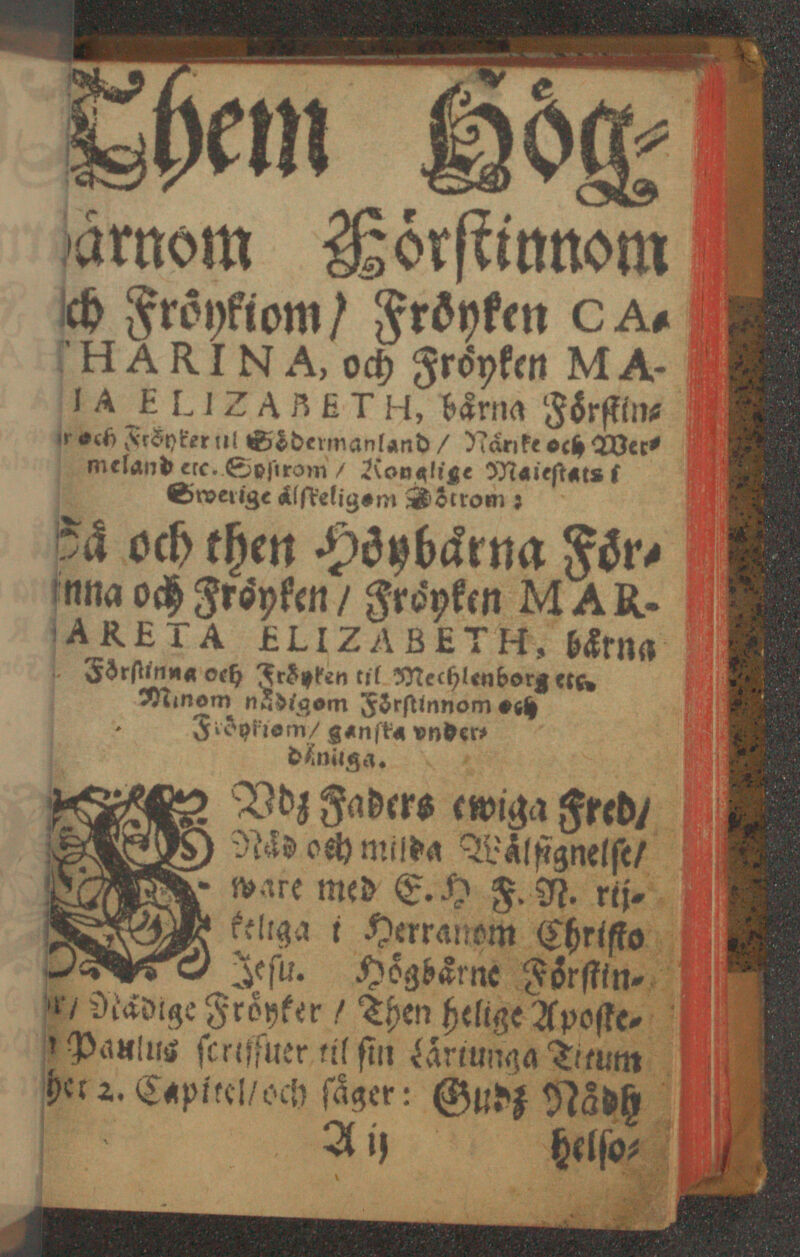 Them Hög-
årnom Förstinnom
ch Fröykiom / Fröyken CA-
THARINA, och Fröyken MA-
IA ELIZABETH, bårna Förstin-
r och Fröyker til Södermanland / Närike och Wer-
meland etc. Systrom / Konglige Maiestats i
Swerige älskeligom Döttrom:
Så och then Höybårna För-
inna och Fröyken / Fröyken MAR-
ARETA ELIZABETH, bårna
Förstinna och Fröyken til Mechlenborg etc.
Minom nådigom Förstinnom och
Fröykiom / ganska vnder-
dånliga.
GVdz Faders ewiga Fred /
Nåd och milda Wälsignelse /
ware med E. H F. N. rij-
keliga i Herranom Christo
Jesu. Högbårne Förstin-
r / Nådige Fröyker / Then helige Aposte-
Paulus scriffuer til sin Läriunga Titum
het 2. Capitel / och säger: Gudz Nådh
A ij helso-